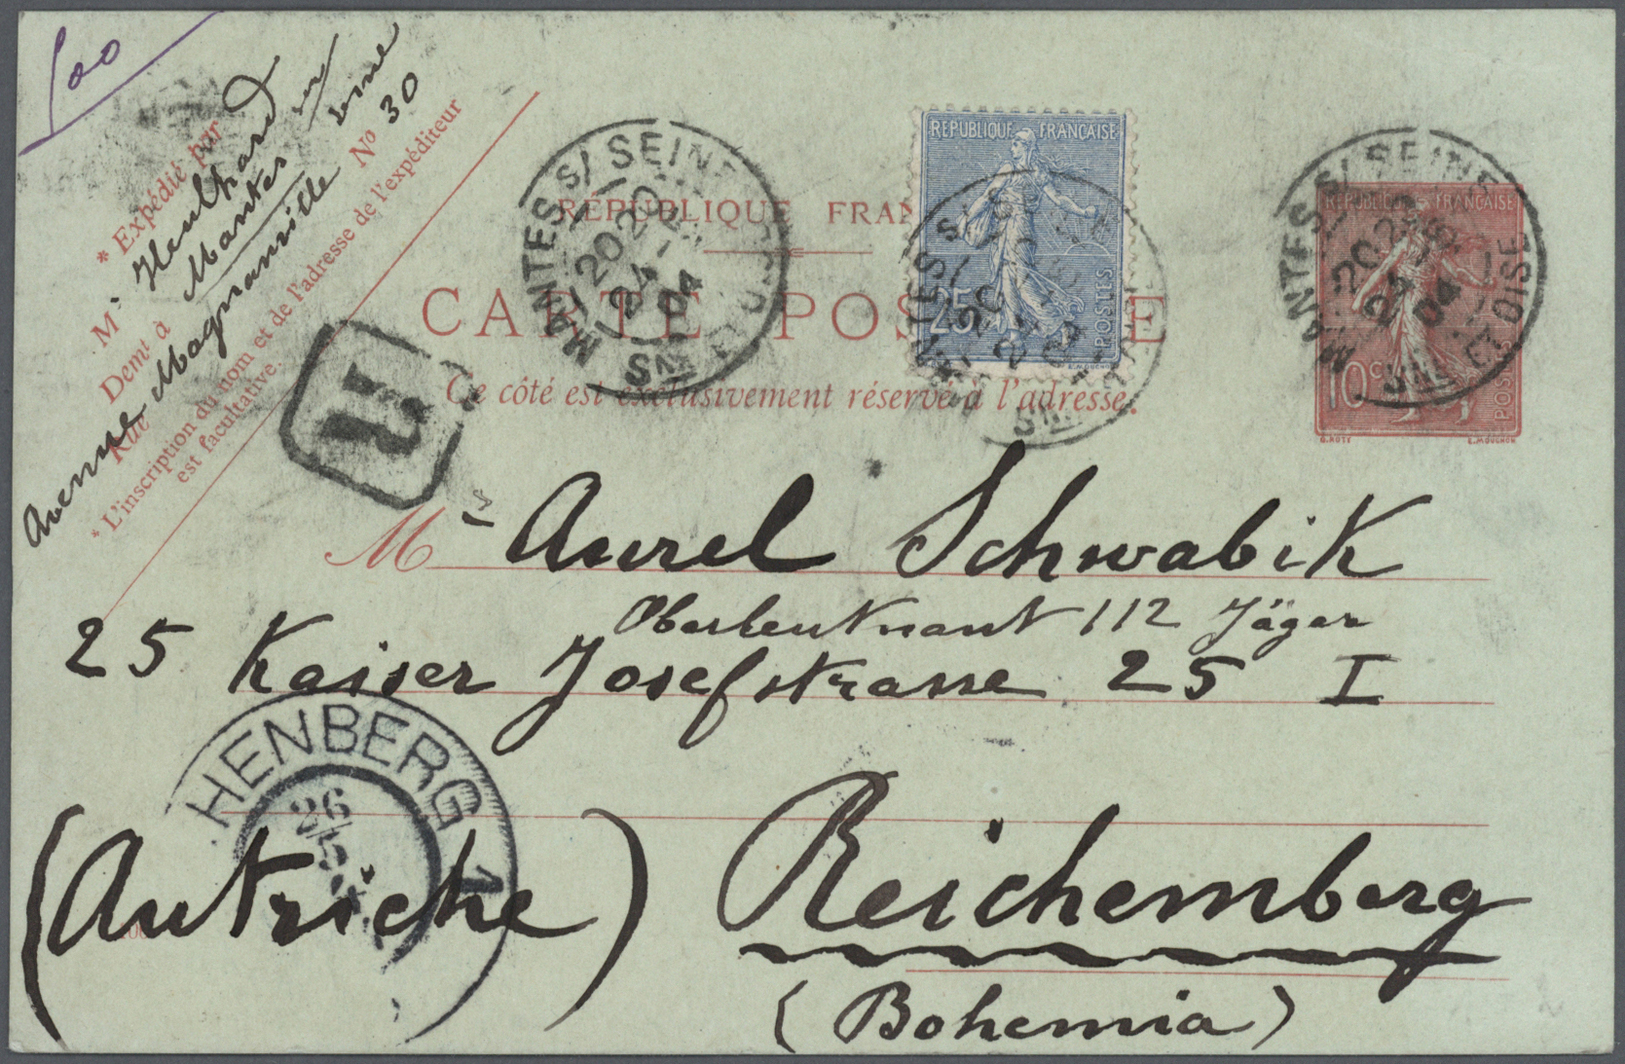 500
* Expédié par
Mr Heulhard
Demt à Mantes sur Seine
Rue Avenue Magnanville No 30
* L'inscription du nom et de l'adresse de l'expéditeur
est facultative.
RÉPUBLIQUE FRAN
CARTE POS E
Ce côté est exclusivement réservé à l'adresse.
R
MANTES S/ SEINE
20 24 04
REPUBLIQUE FRANÇAISE
25c
POSTES
E. MOUCHON
REPUBLIQUE FRANÇAISE
10c
POSTES
O. ROTY E. MOUCHON
MANTES S/ SEINE
20 24 04
SNE ET OISE
Mr Aurel Schwabik
Oberleutnant 112 Jäger
25 Kaiser Josefstrasse 25 I
HENBERG 1
26/5
(Autriche) Reichemberg
(Bohemia)